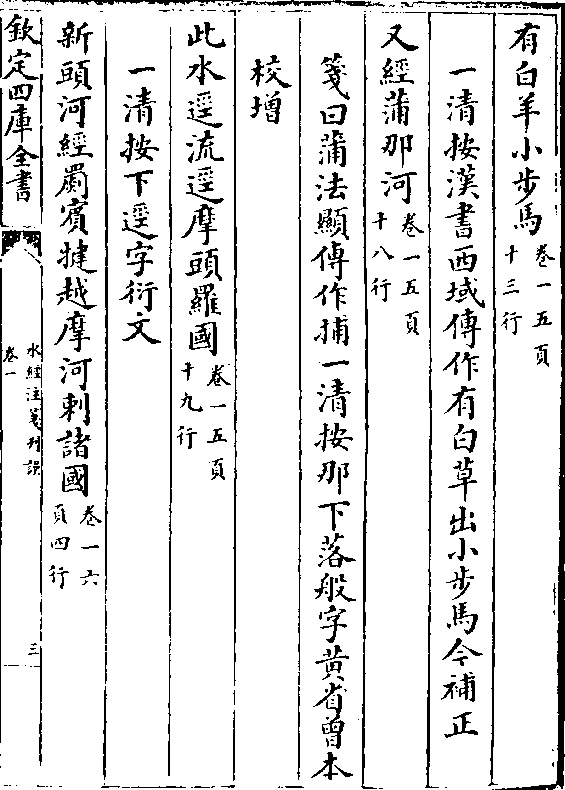 有白羊小步馬卷一五頁十三行
一清按漢書西域傳作有白草出小步馬今補正
又經蒲那河卷一五頁十八行
箋曰蒲法顯傳作捕一清按那下落般字黄省曾本
校增
此水逕流逕摩頭羅國卷一五頁十九行
一清按下逕字衍文
新頭河經罽賓揵越摩河刺諸國卷一六頁四行
欽定四庫全書
水經注箋刋誤
卷一
三